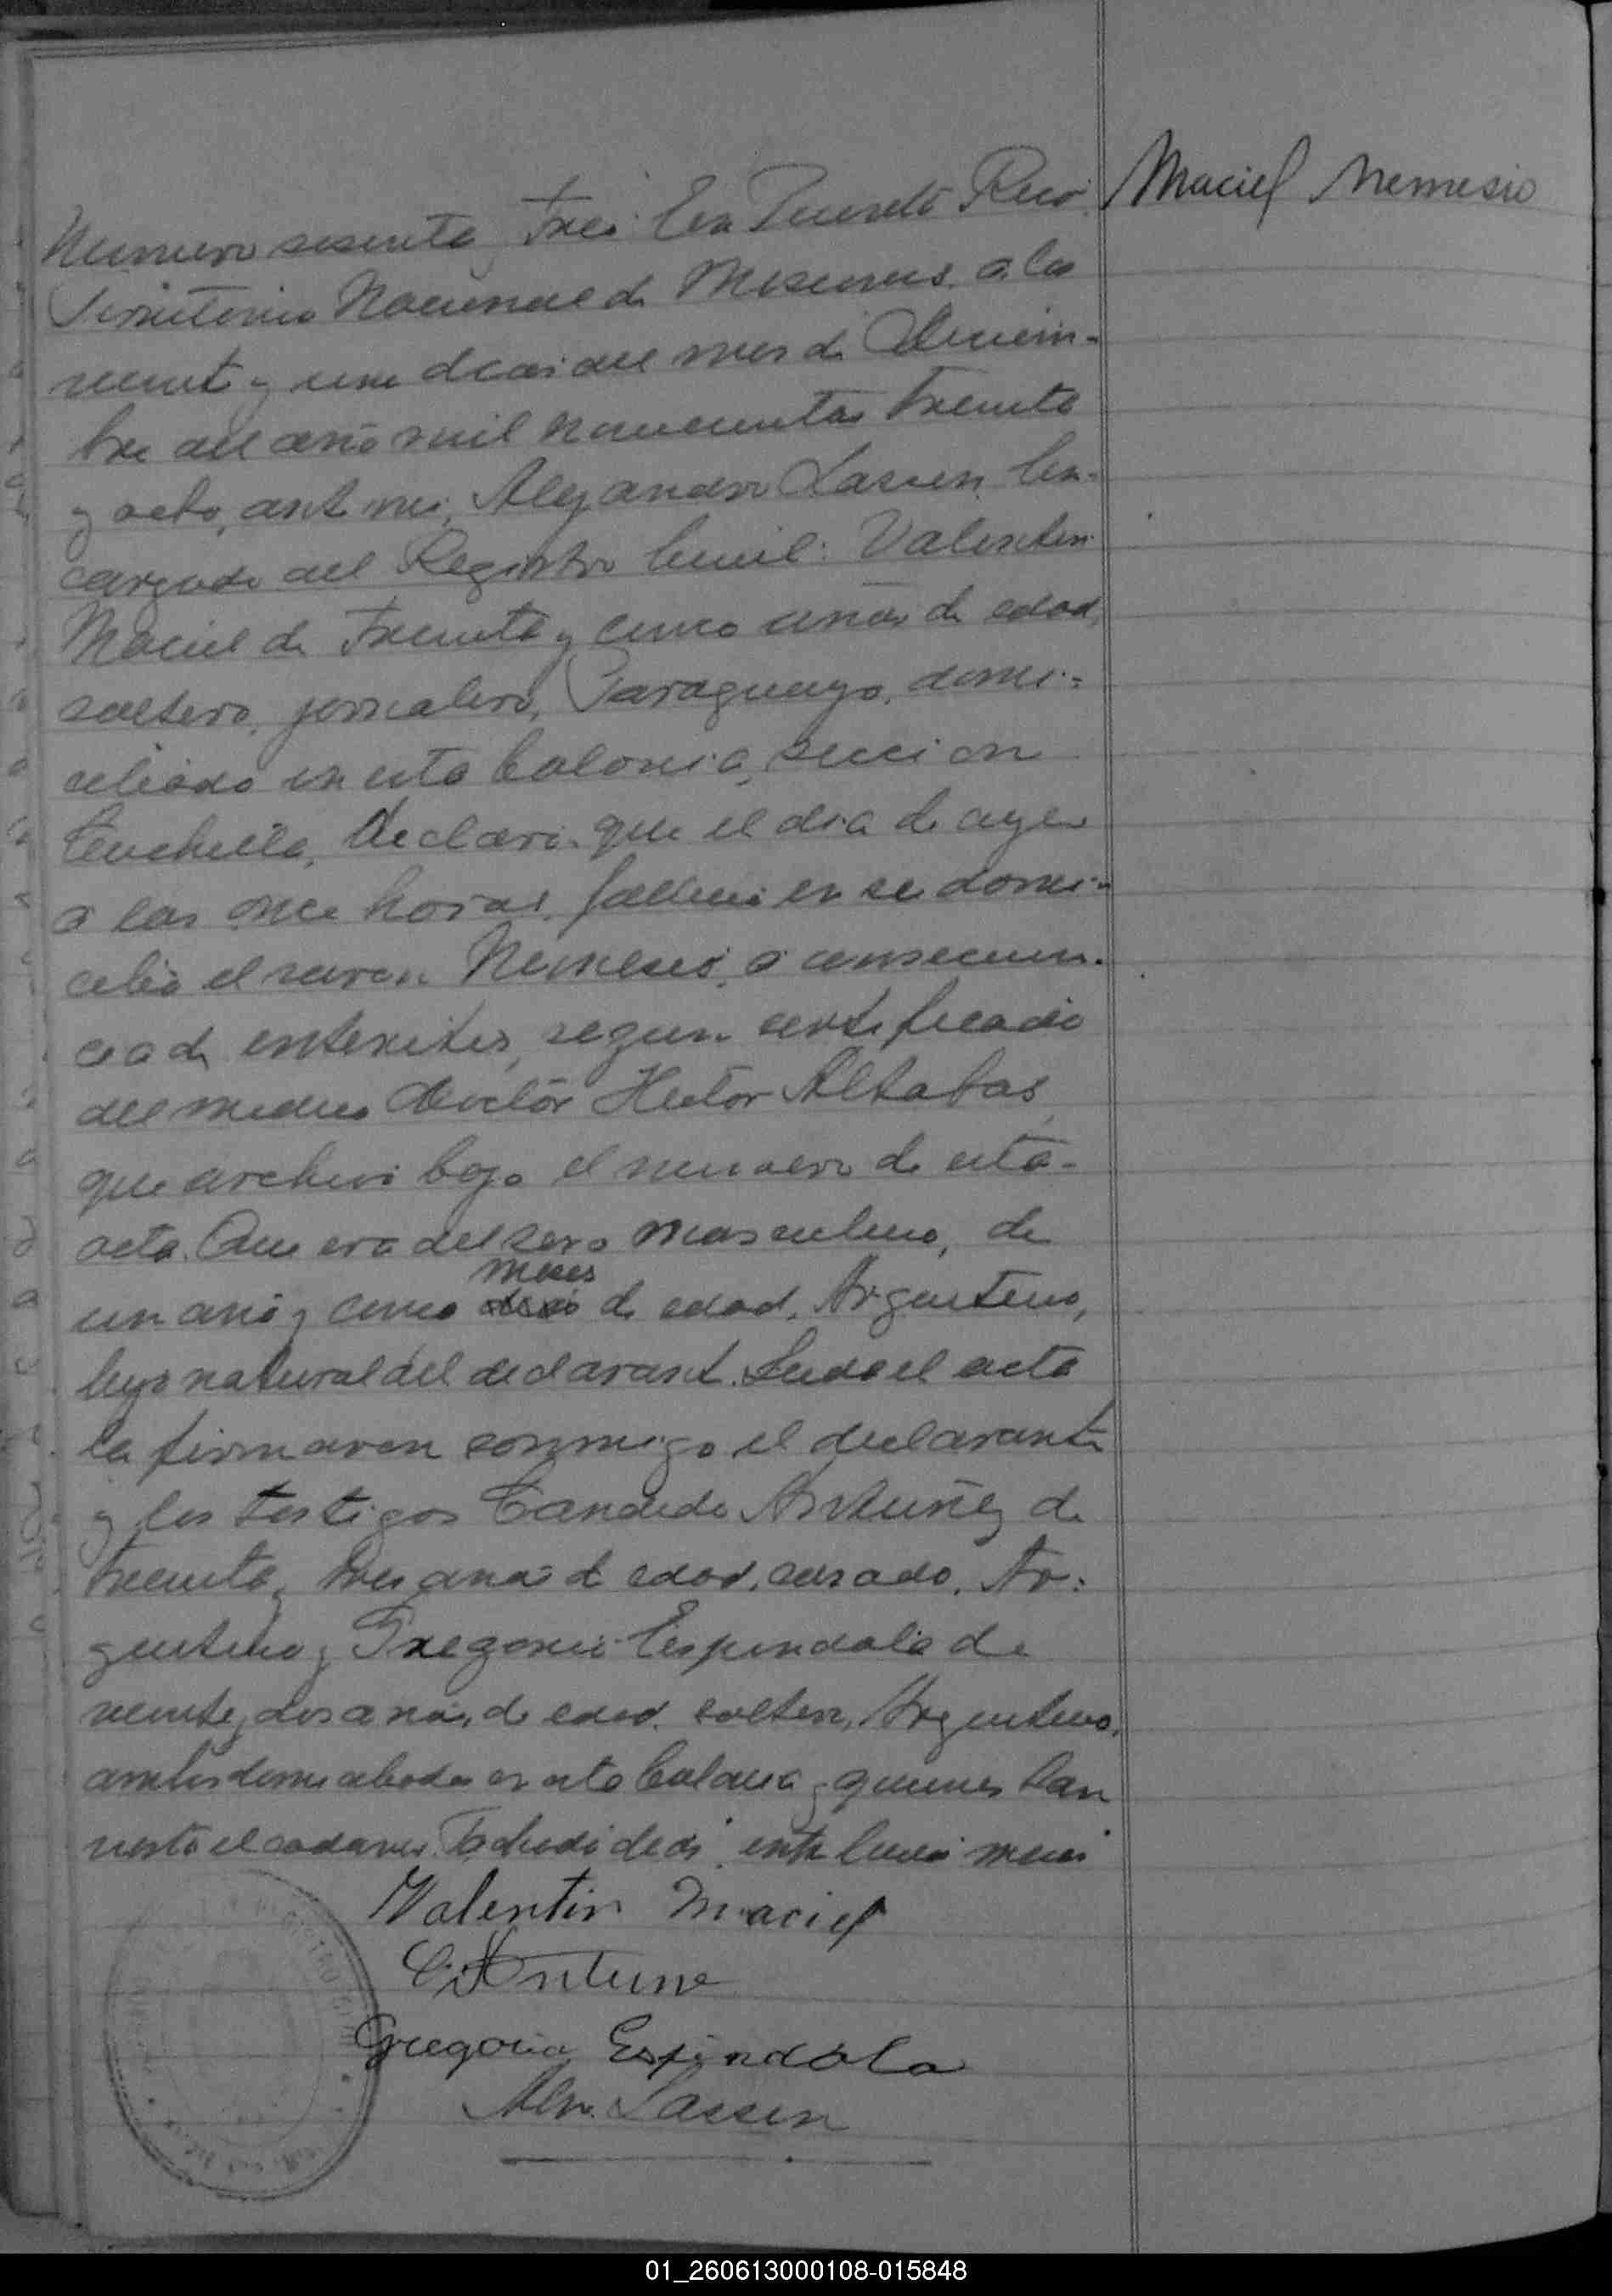 Maciel Nemesio
Numero sesenta y tres: En Puerto Rico
Territorio Nacional de Misiones, a los
veinte y un dias del mes de Diciem-
bre del año mil novecientos treinta
y ocho, ante mi, Alejandro Lassen, En-
cargado del Registro Civil: Valentin
Maciel de treinta y cinco años de edad,
soltero, jornalero, Paraguayo, domi-
ciliado en esta Colonia, seccion
Cuchilla, Declaró: que el dia de ayer
a las once horas, falleció en su domi-
cilio el varon Nemesio, a consecuen-
cia de enteritis, segun certificado
del medico Doctor Hector Altabas,
que archivo bajo el numero de esta
acta. Que era del sexo masculino, de
meses
un año y cinco dias de edad, Argentino,
hijo natural del declarante. Leida el acta
la firmaron conmigo el declarante
y los testigos Candido Antuñez de
treinta y tres años de edad, casado, Ar-
gentino y Gregorio Espindola de
veinte y dos años, de edad, soltero, Argentino,
ambos domiciliados en esta Colonia y quienes han
visto el cadaver. Tachado: dias, entre lineas: meses
Valentin Maciel
C. Antune
Gregorio Espindola
Alej. Lassen
01_260613000108-015848